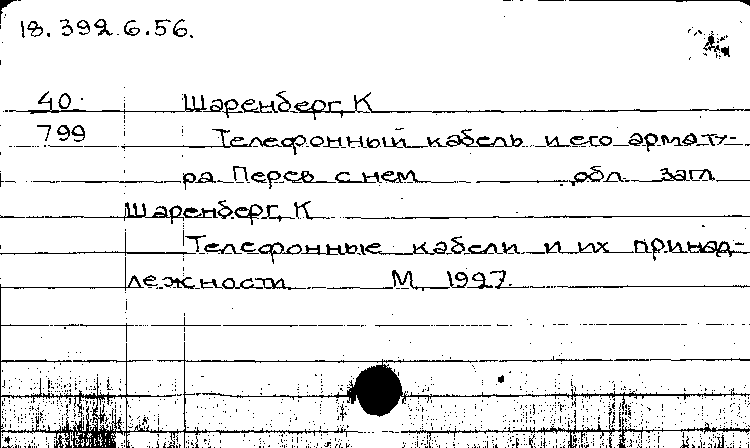 18.392.6.56.
40 Шаренберг, К
799 Телефонный кабель и его армату-
ра Перев с нем обл. загл
Шаренберг, К
Телефонные кабели и их принад-
лежности М, 1927.